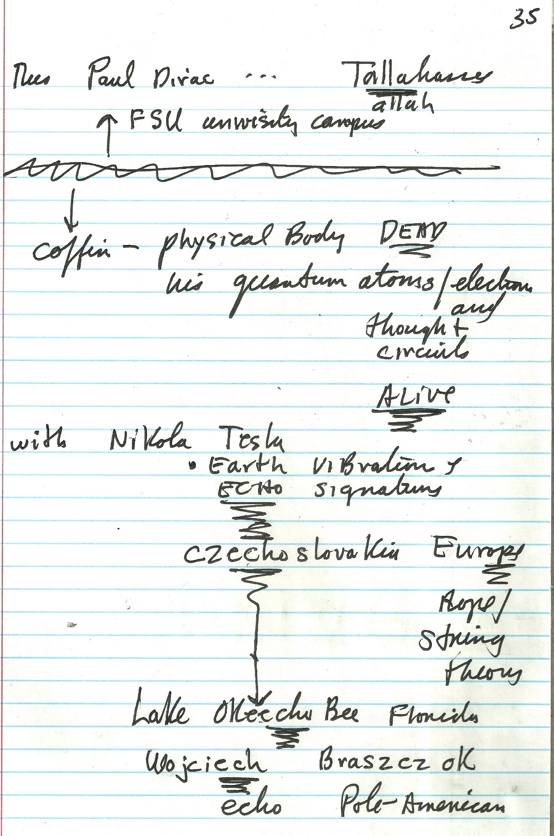 35
Thus Paul Dirac ... Tallahassee
allah
FSU university campus
coffin - physical Body DEAD
his quantum atoms/electrons
and
thought
circuits
ALIVE
with Nikola Tesla
• Earth Vibrations &
ECHO signatures
Czechoslovakia Europe
Rope/
string
theory
Lake Okeecho Bee Florida
Wojciech Braszczok
echo Pole-American